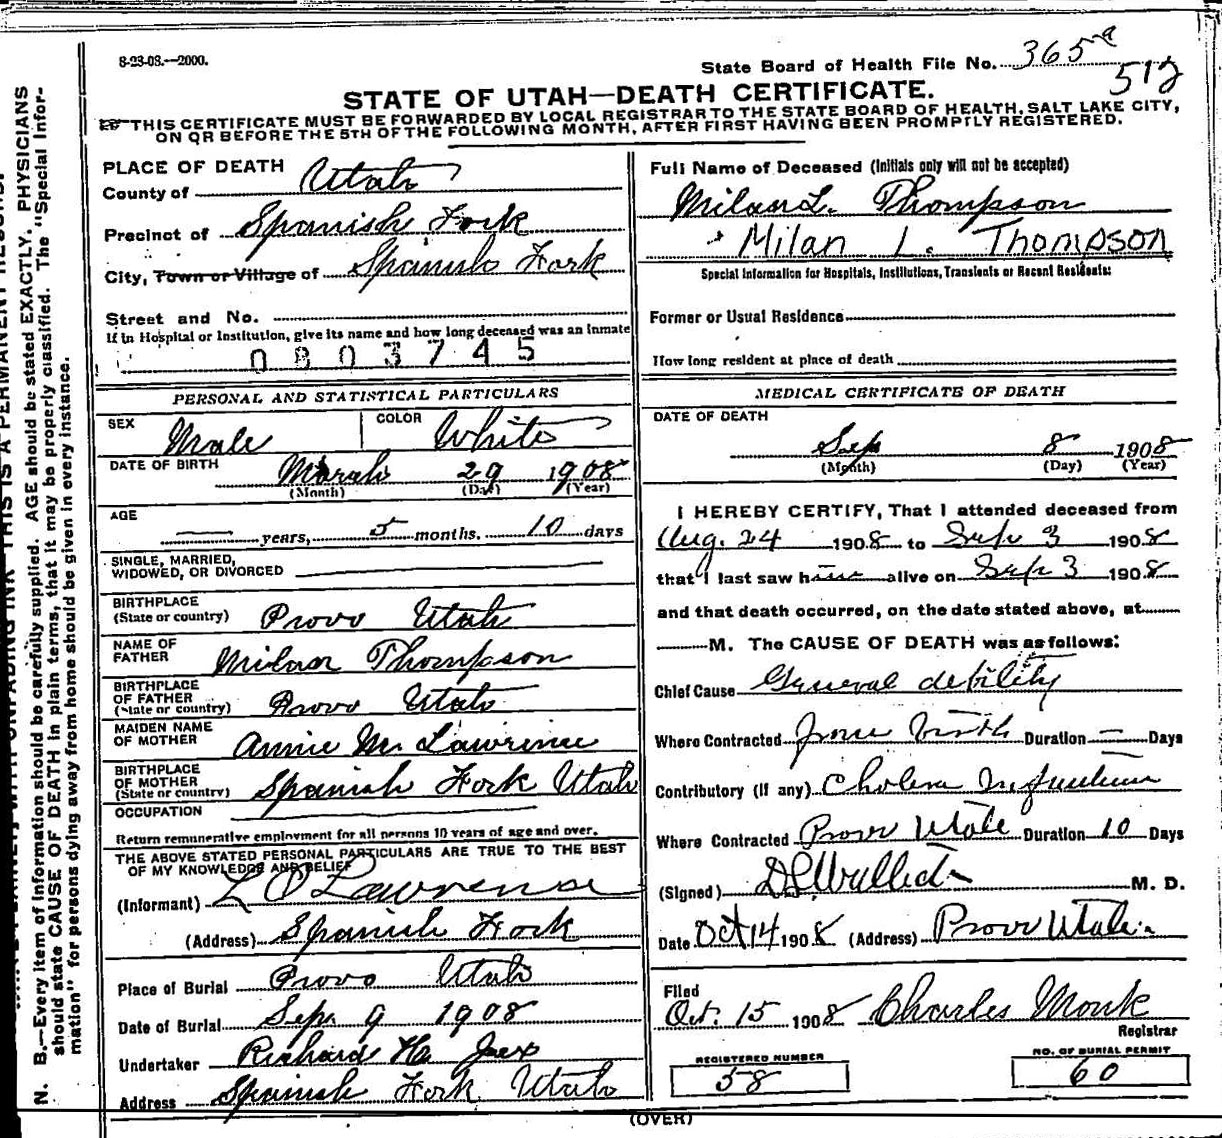 8-23-08.—2000.
State Board of Health File No. 365 a
512
STATE OF UTAH—DEATH CERTIFICATE.
THIS CERTIFICATE MUST BE FORWARDED BY LOCAL REGISTRAR TO THE STATE BOARD OF HEALTH, SALT LAKE CITY,
ON OR BEFORE THE 5TH OF THE FOLLOWING MONTH, AFTER FIRST HAVING BEEN PROMPTLY REGISTERED.
PLACE OF DEATH
County of Utah
Precinct of Spanish Fork
City, Town or Village of Spanish Fork
Street and No.
If in Hospital or Institution, give its name and how long deceased was an inmate
0803745
PERSONAL AND STATISTICAL PARTICULARS
SEX Male COLOR White
DATE OF BIRTH March 29 1908
(Month) (Day) (Year)
AGE
— years, 5 months. 10 days
SINGLE, MARRIED,
WIDOWED, OR DIVORCED
BIRTHPLACE
(State or country) Provo Utah
NAME OF
FATHER Milan Thompson
BIRTHPLACE
OF FATHER
(State or country) Provo Utah
MAIDEN NAME
OF MOTHER Annie M. Lawrence
BIRTHPLACE
OF MOTHER
(State or country) Spanish Fork Utah
OCCUPATION
Return remunerative employment for all persons 10 years of age and over.
THE ABOVE STATED PERSONAL PARTICULARS ARE TRUE TO THE BEST
OF MY KNOWLEDGE AND BELIEF
(Informant) L O Lawrense
(Address) Spanish Fork
Place of Burial Provo Utah
Date of Burial Sep. 9 1908
Undertaker Richard H. Jex
Address Spanish Fork Utah
Full Name of Deceased (Initials only will not be accepted)
Milan L. Thompson
Milan L. Thompson
Special Information for Hospitals, Institutions, Transients or Recent Residents:
Former or Usual Residence
How long resident at place of death
MEDICAL CERTIFICATE OF DEATH
DATE OF DEATH
Sep 8 1908
(Month) (Day) (Year)
I HEREBY CERTIFY, That I attended deceased from
Aug. 24 1908 to Sep 3 1908
that I last saw him alive on Sep 3 1908
and that death occurred, on the date stated above, at
M. The CAUSE OF DEATH was as follows:
Chief Cause General debility
Where Contracted from birth Duration — Days
Contributory (if any) Cholera Infantum
Where Contracted Provo Utah Duration 10 Days
(Signed) M. D.
Date Oct 14 1908 (Address) Provo Utah.
Filed
Oct. 15 1908 Charles Monk
Registrar
REGISTERED NUMBER
58
NO. OF BURIAL PERMIT
60
(OVER)
N. B.—Every item of information should be carefully supplied. AGE should be stated EXACTLY. PHYSICIANS
should state CAUSE OF DEATH in plain terms, that it may be properly classified. The "Special Infor-
mation" for persons dying away from home should be given in every instance.